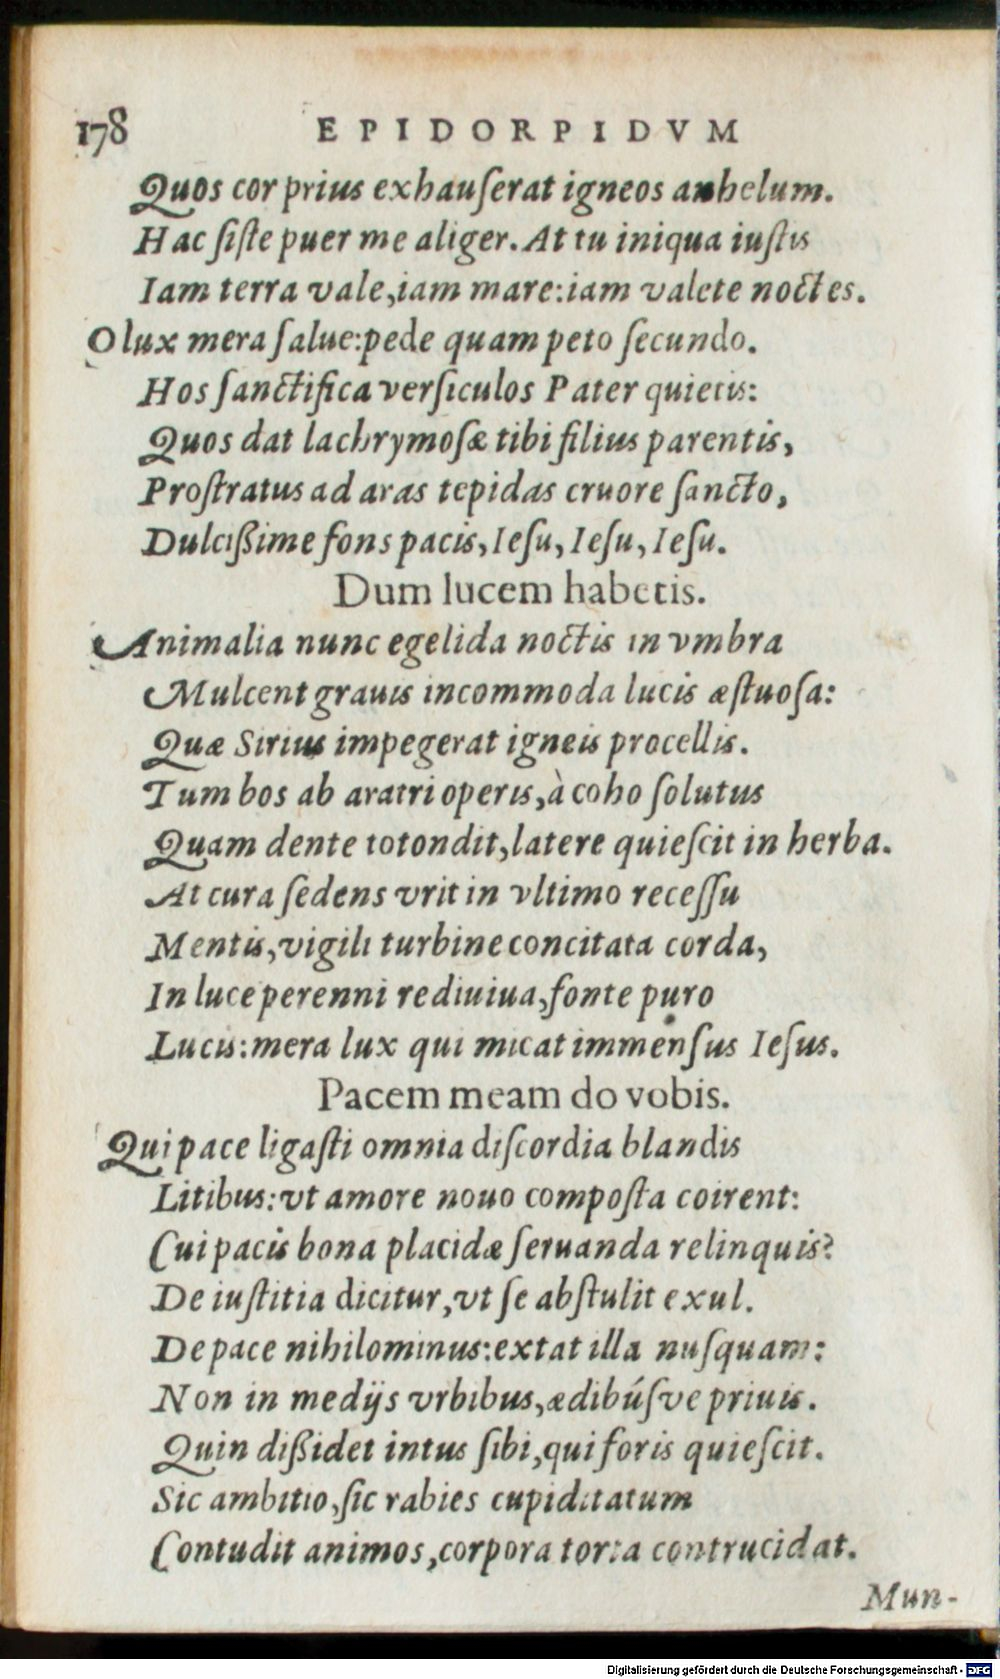 178 EPIDORPIDVM
Quos cor prius exhauſerat igneos anhelum.
Hac ſiſte puer me aliger. At tu iniqua iuſtis
Iam terra vale, iam mare: iam valete noctes.
O lux mera ſalue: pede quam peto ſecundo.
Hos ſanctifica verſiculos Pater quietis:
Quos dat lachrymoſæ tibi filius parentis,
Proſtratus ad aras tepidas cruore ſancto,
Dulcißime fons pacis, Ieſu, Ieſu, Ieſu.
Dum lucem habetis.
Animalia nunc egelida noctis in vmbra
Mulcent grauis incommoda lucis æſtuoſa:
Quæ Sirius impegerat igneis procellis.
Tum bos ab aratri operis, à coho ſolutus
Quam dente totondit, latere quieſcit in herba.
At cura ſedens vrit in vltimo receſſu
Mentis, vigili turbine concitata corda,
In luce perenni rediuiua, fonte puro
Lucis: mera lux qui micat immenſus Ieſus.
Pacem meam do vobis.
Qui pace ligaſti omnia diſcordia blandis
Litibus: vt amore nouo compoſta coirent:
Cui pacis bona placidæ ſeruanda relinquis?
De iuſtitia dicitur, vt ſe abſtulit exul.
De pace nihilominus: extat illa nuſquam:
Non in medijs vrbibus, ædibúſve priuis.
Quin dißidet intus ſibi, qui foris quieſcit.
Sic ambitio, ſic rabies cupiditatum
Contudit animos, corpora torta contrucidat.
Mun-
Digitalisierung gefördert durch die Deutsche Forschungsgemeinschaft - DFG